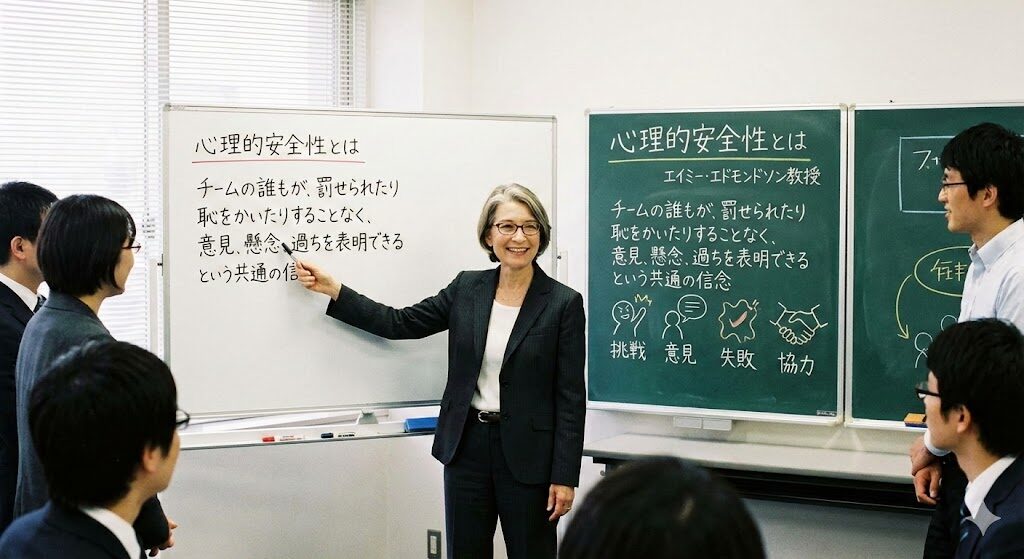 心理的安全性とは
チームの誰もが、罰せられたり
恥をかいたりすることなく、
意見、懸念、過ちを表明できる
という共通の信
心理的安全性とは
エイミー・エドモンドソン教授
チームの誰もが、罰せられたり
恥をかいたりすることなく、
意見、懸念、過ちを表明できる
という共通の信念
挑戦
意見
失敗
協力